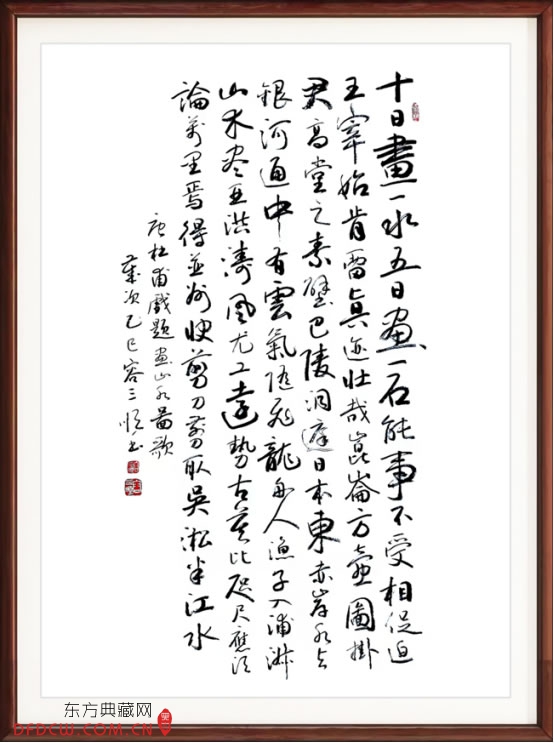 十日畫一水五日畫一石能事不受相促迫
王宰始肯留真迹壯哉崑崙方壺圖掛
君高堂之素壁巴陵洞庭日本東赤岸水与
銀河通中有雲氣隨飛龍舟人漁子入浦溆
山木盡亞洪濤風尤工遠勢古莫比咫尺應須
論萬里焉得並州快剪刀剪取吳淞半江水
唐杜甫戲題畫山水圖歌
歲次乙巳容三書
东方典藏网
DFDCW.COM.CN